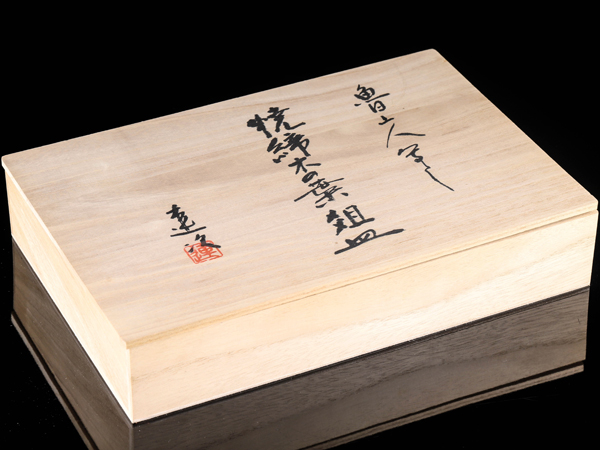 魯山人写し
焼締木の葉組皿